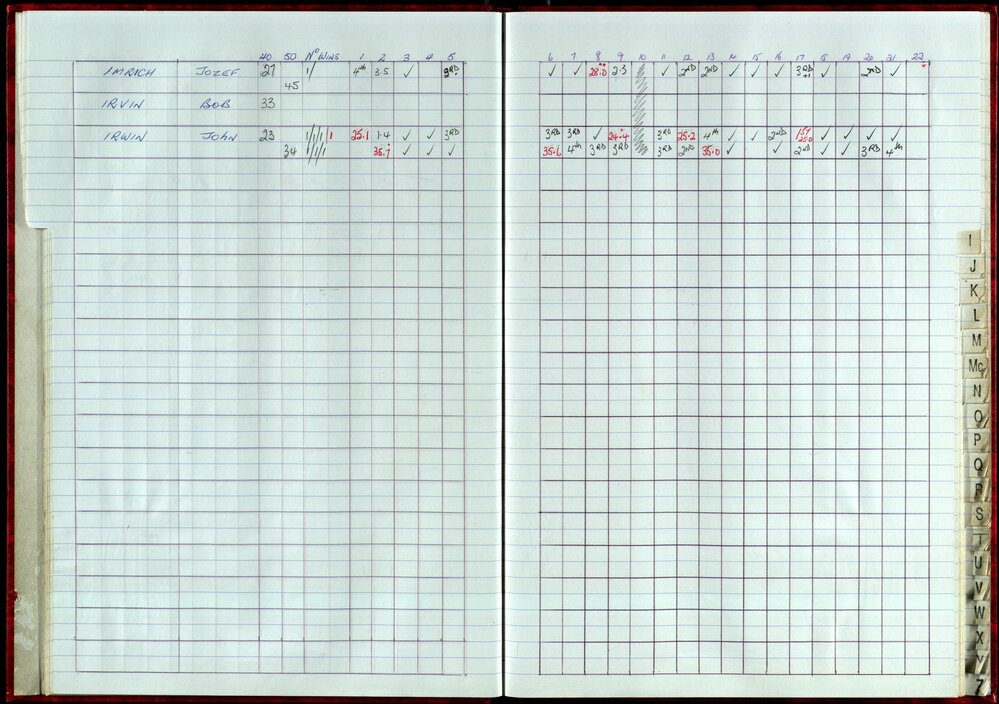 40 50 No WINS 1 2 3 4 5 6 7 8 9 10 11 12 13 14 15 16 17 18 19 20 21 22
IMRICH JOZEF 27 / 4th 3.5 ✓ 3RD ✓ ✓ 28.0 2.3 ✓ 2ND 2ND ✓ ✓ ✓ 3RD ✓ 2ND ✓
45
IRVIN BOB 33
IRWIN JOHN 23 25.1 1.4 ✓ ✓ 3RD 3RD 3RD ✓ 24.4 3RD 25.2 4th ✓ ✓ 2ND 1ST 25.0 ✓ ✓ ✓ ✓
34 35.1 ✓ ✓ ✓ 35.6 4th 3RD 3RD 3RD 2ND 35.0 ✓ ✓ 2ND ✓ ✓ 3RD 4th
I
J
K
L
M
Mc
N
O
P
Q
R
S
T
U
V
W
X
Y
Z